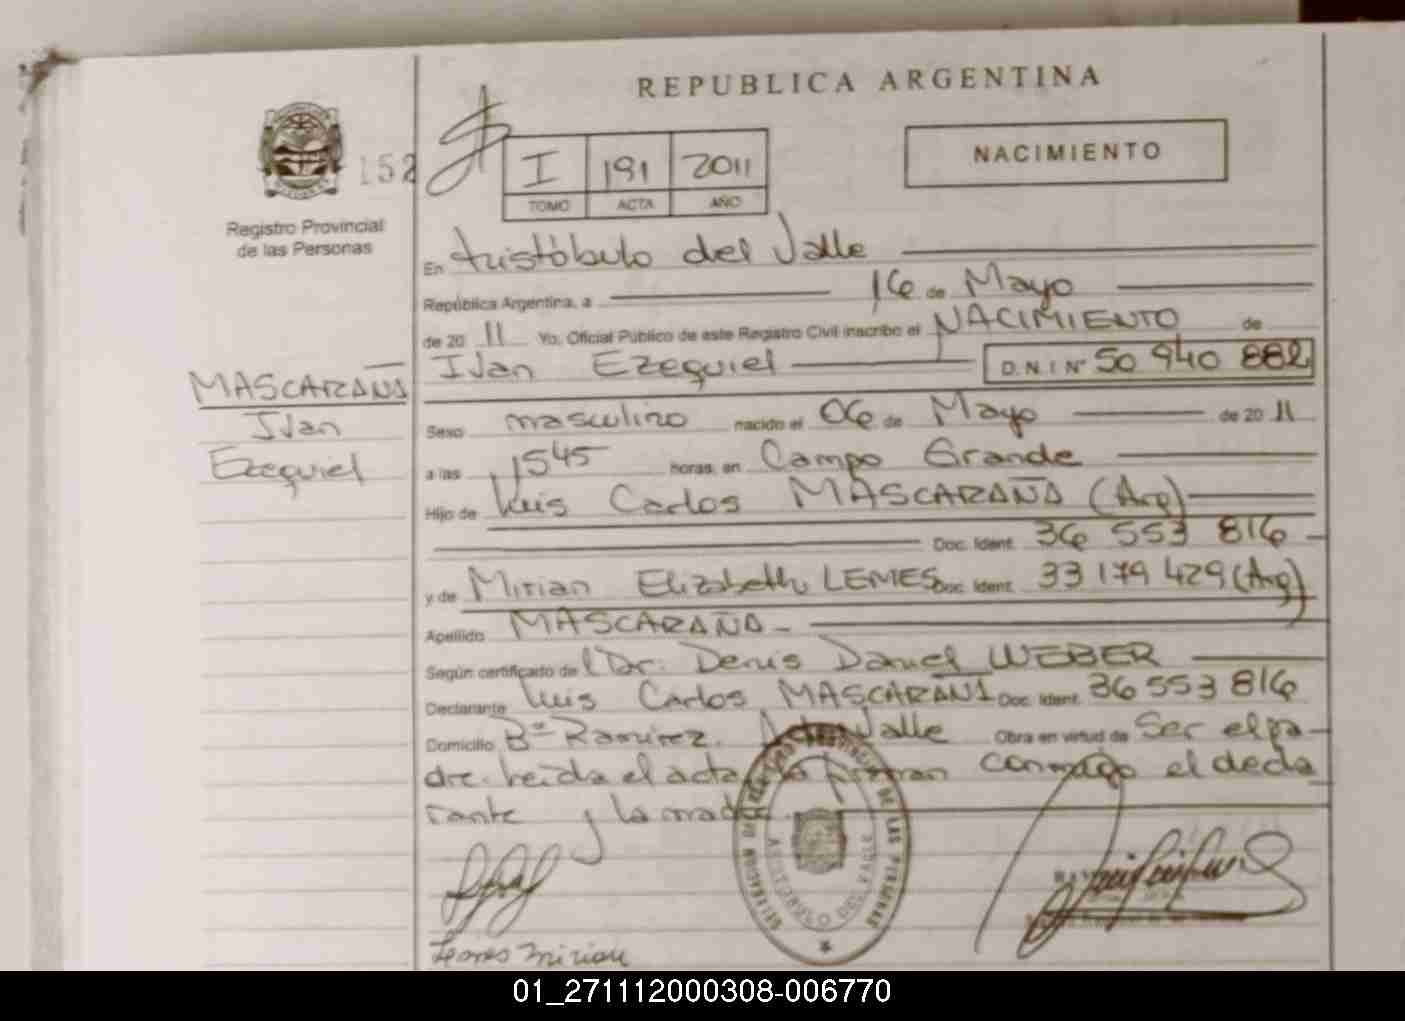 REPUBLICA ARGENTINA
152
I 191 2011
TOMO ACTA AÑO
NACIMIENTO
Registro Provincial
de las Personas
En Aristóbulo del Valle
República Argentina, a 16 de Mayo
de 20 11 Yo, Oficial Público de este Registro Civil inscribo el NACIMIENTO de
Ivan Ezequiel D.N.I Nº 50 940 882
MASCARAÑA
Ivan
Ezequiel
Sexo masculino nacido el 06 de Mayo de 20 11
a las 1545 horas, en Campo Grande
Hijo de Luis Carlos MASCARAÑA (Arg)
Doc. Ident. 36 553 816
y de Mirian Elizabeth LEMES Doc. Ident. 33 179 429 (Arg)
Apellido MASCARAÑA
Según certificado de Dr. Denis Daniel WEBER
Declarante Luis Carlos MASCARAÑA Doc. Ident. 36 553 816
Domicilio Bº Ramirez. Valle Obra en virtud de Ser el pa-
dre. Leida el acta la firman conmigo el decla
rante y la madre.
DELEGACION DE LAS PERSONAS
ARISTOBULO DEL VALLE
Lemes Mirian
01_271112000308-006770